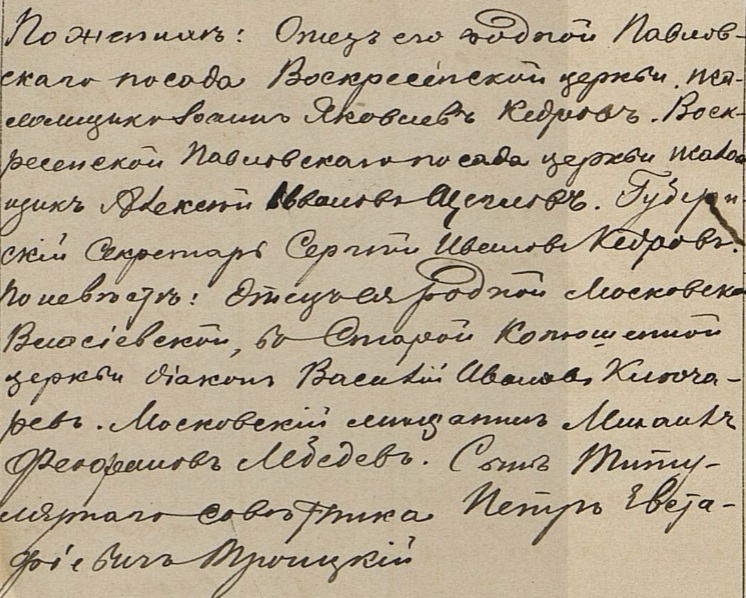 По женихѣ: Отецъ его родной Павлов-
скаго посада Воскресенской церкви, пса-
ломщикъ Іоаннъ Яковлевъ Кедровъ. Воск-
ресенской Павловскаго посада церкви псалом
щикъ Алексѣй Ивановъ Щегловъ. Губерн-
скій Секретарь Сергѣй Ивановъ Кедровъ.
По невѣстѣ: Отецъ ея родной Московской
Власіевской, въ Старой Конюшенной
церкви діаконъ Василій Ивановъ Ключа-
ревъ. Московскій мѣщанинъ Михаилъ
Феофановъ Лебедевъ. Сынъ Титу-
лярнаго совѣтника Петръ Евста-
фіевичъ Троицкій